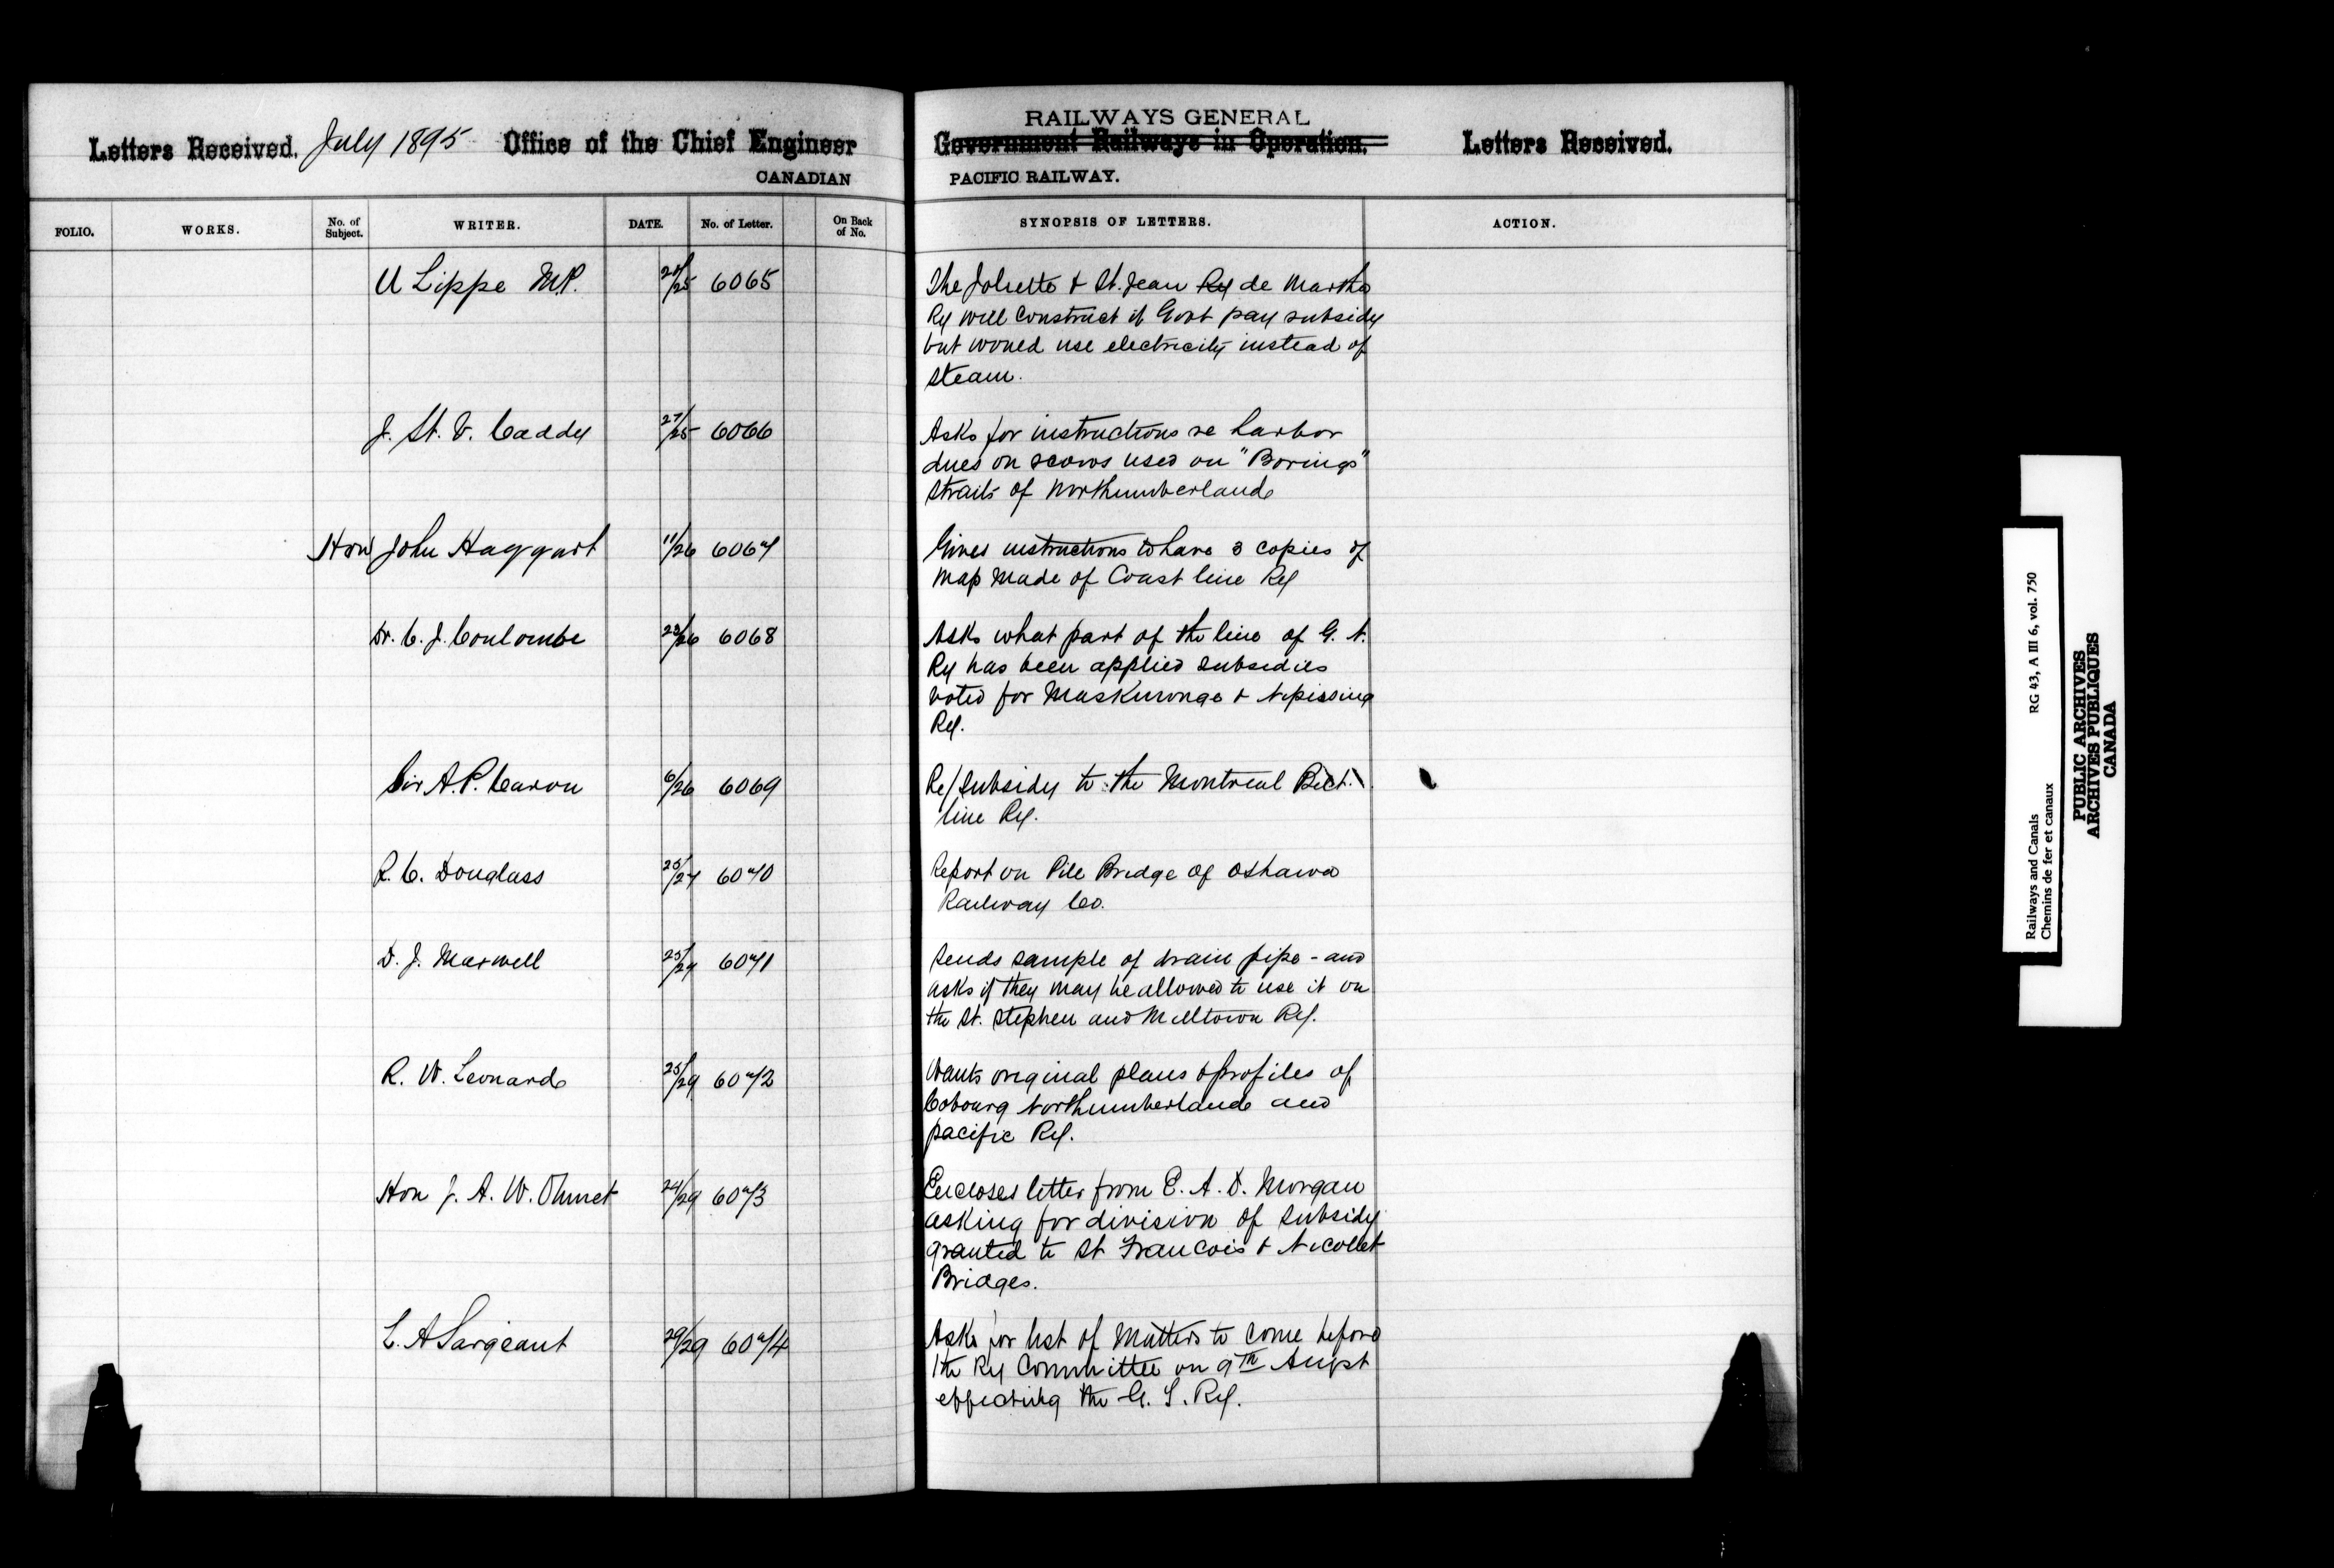 Letters Received. July 1895 Office of the Chief Engineer
CANADIAN
FOLIO. WORKS. No. of Subject. WRITER. DATE. No. of Letter. On Back of No.
U Lippe M.P. 24/25 6065
J. St. V. Caddy 27/25 6066
Hon John Haggart 11/26 6067
Dr. C. J. Coulombe 23/26 6068
Sir A. P. Caron 6/26 6069
R. C. Douglass 25/27 6070
D. J. Maxwell 25/27 6071
R. W. Leonard 25/29 6072
Hon J. A. W. Ouimet 24/29 6073
L. A Sargeant 29/29 6074
RAILWAYS GENERAL
Government Railways in Operation. Letters Received.
PACIFIC RAILWAY.
SYNOPSIS OF LETTERS. ACTION.
The Joliette & St. Jean Ry de Martha
Ry will construct if Govt pay subsidy
but would use electricity instead of
steam.
Asks for instructions re harbor
dues on scows used on "Borings"
Straits of Northumberland
Gives instructions to have 3 copies of
map made of Coast line Ry
Asks what part of the line of G. N.
Ry has been applied subsidies
voted for Maskinonge & Nipissing
Ry.
Re/ Subsidy to the Montreal
line Ry.
Report on Pile Bridge of Oshawa
Railway Co.
Sends sample of drain pipe - and
asks if they may be allowed to use it on
the St. Stephen and Milltown Ry.
Wants original plans & profiles of
Cobourg Northumberland and
pacific Ry.
Encloses letter from E. A. D. Morgan
asking for division of subsidy
granted to St Francois & Nicollet
Bridges.
Asks for list of Matters to come before
the Ry Committee on 9th Augst
the G. T. Ry.
Railways and Canals RG 43, A III 6, vol. 750
Chemins de fer et canaux
PUBLIC ARCHIVES
ARCHIVES PUBLIQUES
CANADA